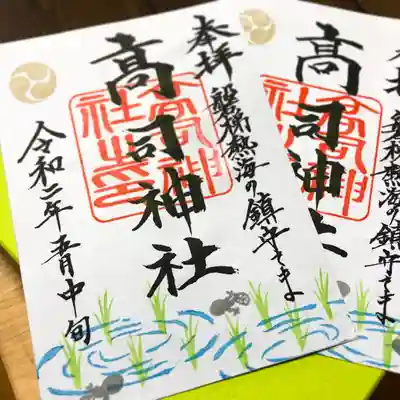 奉拝
磐梯熱海の鎮守さまよ
高司神社
高司神社之印
令和二年五月中旬
奉拝
磐梯熱海の鎮守さまよ
高司神社